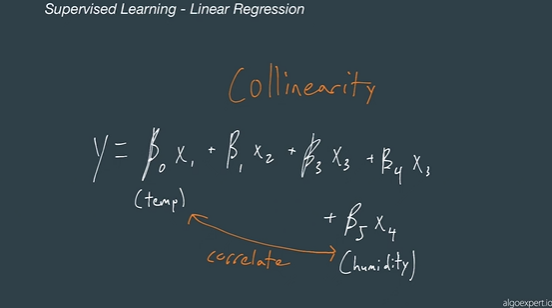 Supervised Learning - Linear Regression
Collinearity
y = β₀ x₁ + β₁ x₂ + β₃ x₃ + β₄ x₃
(temp)
+ β₅ x₄
correlate
(humidity)
algoexpert.io